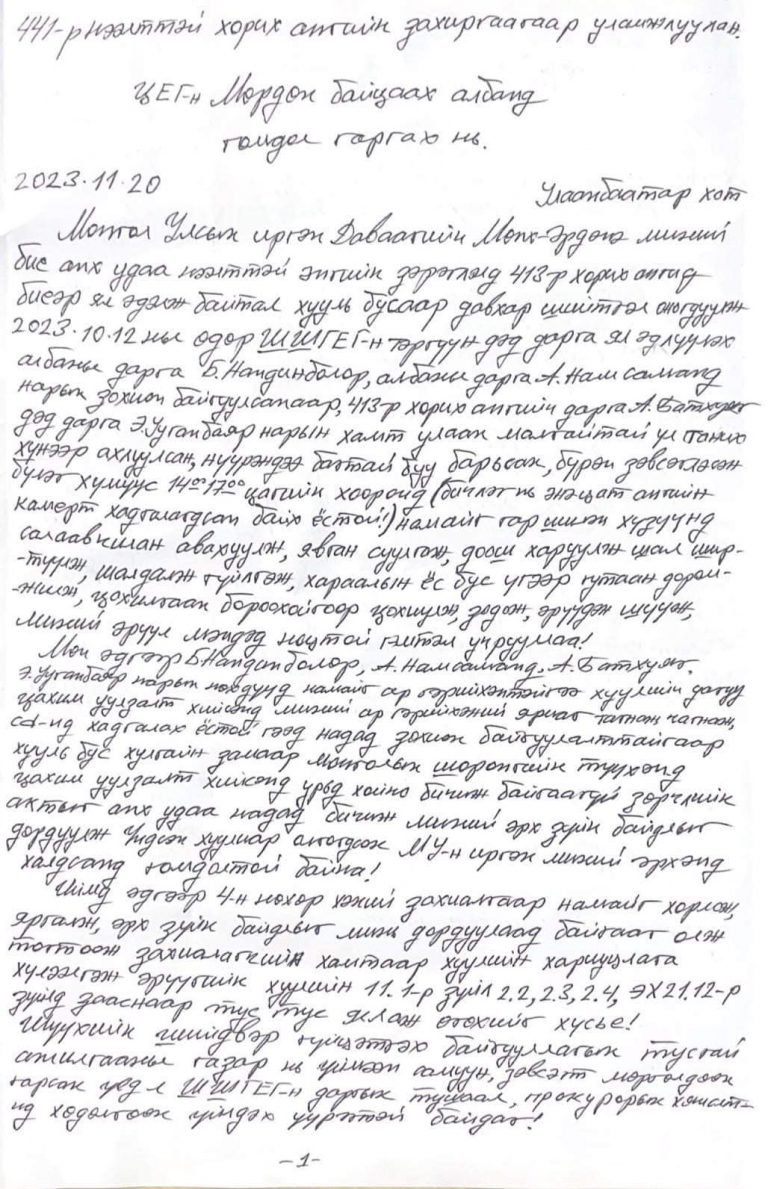 441-р нээлттэй хорих ангийн захиргаагаар уламжлуулан.
ЦЕГ-н Мөрдөн байцаах албанд
гомдол гаргах нь.
2023.11.20
Улаанбаатар хот
Монгол Улсын иргэн Даваагийн Мөнх-Эрдэнэ миний
бие анх удаа нээлттэй энгийн дэглэмд 413-р хорих ангид
биеэр ял эдэлж байтал хууль бусаар давхар шийтгэл оногдуулж
2023.10.12 ны өдөр ШШГЕГ-н тэргүүн дэд дарга ял эдлүүлэх
албаны дарга Б.Нандинболор, албаны дарга А.Намсамганд
нарын зохион байгуулснаар, 413-р хорих ангийн дарга А.Батхуяг
дэд дарга Э.Ууганбаяр нарын хамт улаан малгайтай ул таних
хүнээр ахлуулсан, нүүрэндээ багтай буу барьсан, бүрэн зэвсэглэсэн
бүлэг хүмүүс 14⁰⁰ 17⁰⁰ цагийн хооронд (бичлэг нь энэ цагт ангийн
камерт хадгалагдсан байх ёстой!) намайг гар шилэн хүзүүнд
салаавчлан авахуулж, явган суулгаж, доош харуулж шал шир-
-түүлж, шалдалж гүйлгэж, хараалын ёс бус үгээр гутаан дором-
-жилж, цохилгаан бороохойгоор цохиулж, зодож, эрүүдэн шүүж,
миний эрүүл мэндэд ноцтой гэмтэл учрууллаа!
Мөн эдгээр Б.Нандинболор, А.Намсамганд, А.Батхуяг,
Э.Ууганбаяр нарын нөхдүүд намайг ар гэрийхэнтэйгээ хуулийн дагуу
цахим уулзалт хийхэд миний ар гэрийхэний яриаг тагнаж чагнаж,
cd-нд хадгалах ёстой гээд надад зохион байгуулалттайгаар
хууль бус хулгайн замаар монголын шоронгийн түүхэнд
цахим уулзалт хийхэд урьд хойно бичиж байгаагүй зөрчлийн
актыг анх удаа надад бичиж миний эрх зүйн байдлыг
дордуулж Үндсэн хуулиар олгогдсон МУ-н иргэн миний эрхэнд
халдсанд гомдолтой байна!
Иймд эдгээр 4-н нөхөр хэний захиалгаар намайг хорлож,
яргалж, эрх зүйн байдлыг минь дордуулаад байгааг олж
тогтоож захиалагчийн хамтаар хуулийн хариуцлага
хүлээлгэж эрүүгийн хуулийн 11.1-р зүйл 2.2, 2.3, 2.4, ЭХ 21.12-р
зүйлд зааснаар тус тус яллаж өгөхийг хүсье!
Шүүхийн шийдвэр гүйцэтгэх байгууллагын тусгай
ажиллагааны газар нь үймээн самуун, зэвсэгт мөргөлдөөн
гарсан үед л ШШГЕГ-н даргын тушаал, прокурорын хяналт-
нд хөдөлгөөн үйлдэх үүрэгтэй байдаг!
-1-